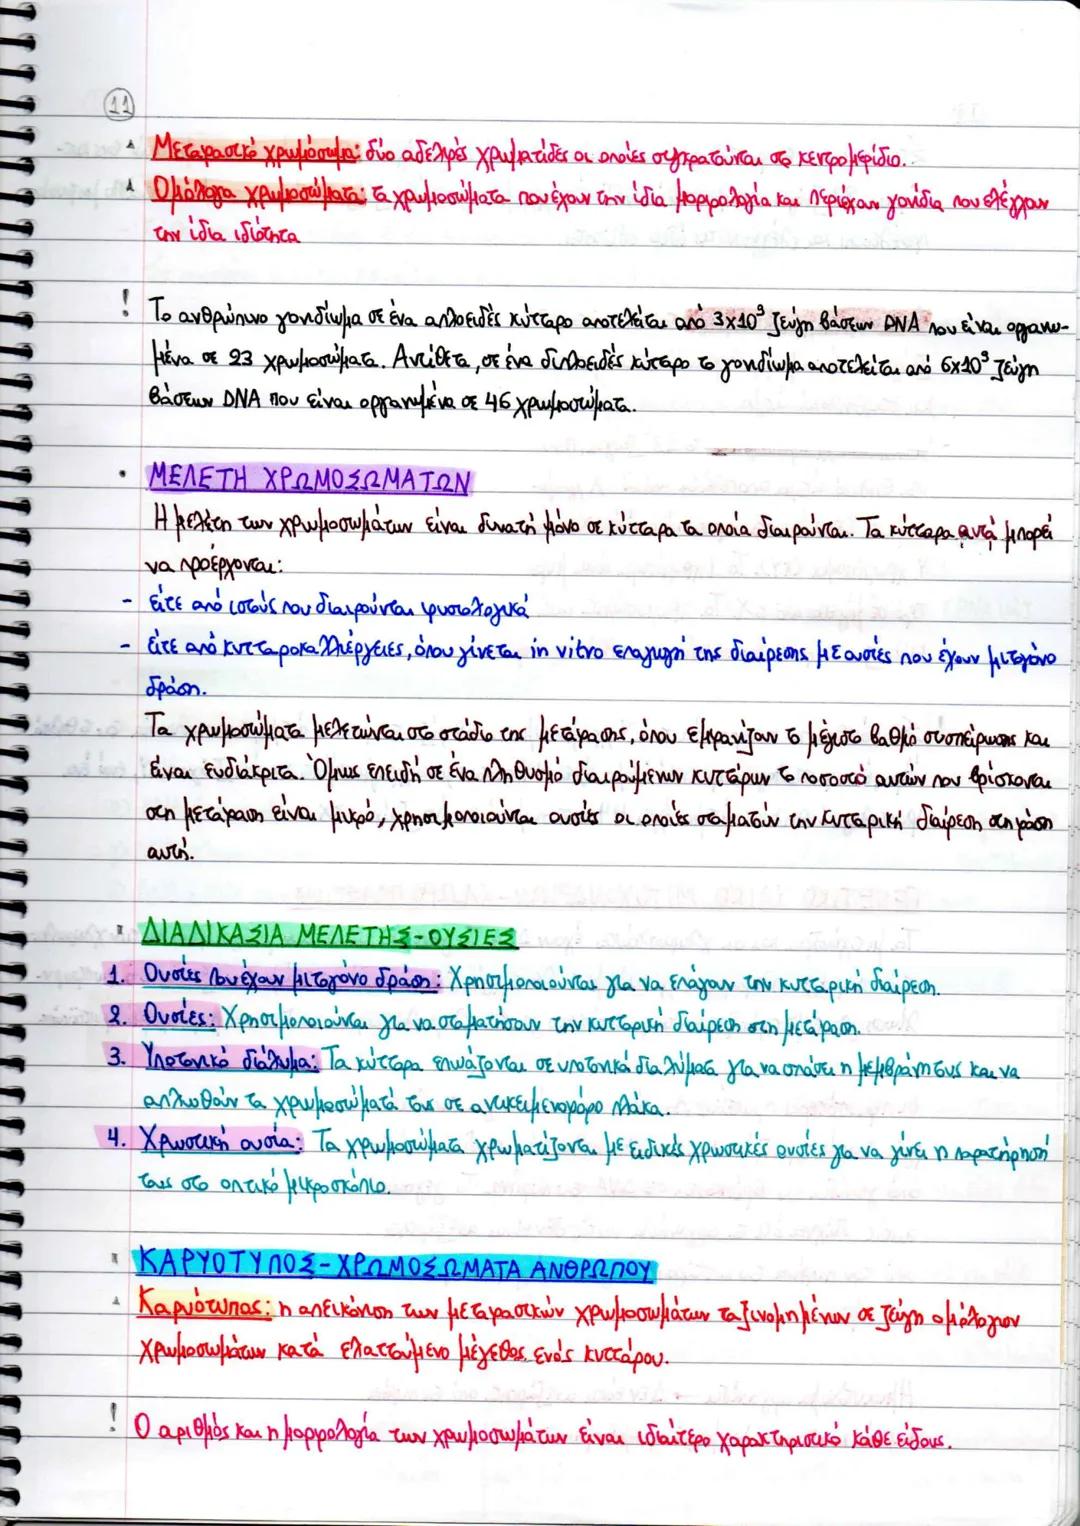 11
Μεταφασικό χρωμόσωμα: δύο αδελφές χρωματίδες οι οποίες συγκρατούνται στο κεντρομερίδιο.
Ομόλογα χρωμοσώματα: τα χρωμοσώματα που έχουν την ίδια μορφολογία και περιέχουν γονίδια που ελέγχουν
την ίδια ιδιότητα
! Το ανθρώπινο γονιδίωμα σε ένα απλοειδές κύτταρο αποτελείται από 3x10⁹ ζεύγη βάσεων DNA που είναι οργανω-
μένα σε 23 χρωμοσώματα. Αντίθετα, σε ένα διπλοειδές κύτταρο το γονιδίωμα αποτελείται από 6x10⁹ ζεύγη
βάσεων DNA που είναι οργανωμένα σε 46 χρωμοσώματα.
• ΜΕΛΕΤΗ ΧΡΩΜΟΣΩΜΑΤΩΝ
Η μελέτη των χρωμοσωμάτων είναι δυνατή μόνο σε κύτταρα τα οποία διαιρούνται. Τα κύτταρα αυτά μπορεί
να προέρχονται:
- είτε από ιστούς που διαιρούνται φυσιολογικά
- είτε από κυτταροκαλλιέργειες, όπου γίνεται in vitro επαγωγή της διαίρεσης με ουσίες που έχουν μιτογόνο
δράση.
Τα χρωμοσώματα μελετώνται στο στάδιο της μετάφασης, όπου εμφανίζουν το μέγιστο βαθμό συσπείρωσης και
είναι ευδιάκριτα. Όμως επειδή σε ένα πληθυσμό διαιρούμενων κυττάρων το ποσοστό αυτών που βρίσκονται
στη μετάφαση είναι μικρό, χρησιμοποιούνται ουσίες οι οποίες σταματούν την κυτταρική διαίρεση στη φάση
αυτή.
ΔΙΑΔΙΚΑΣΙΑ ΜΕΛΕΤΗΣ-ΟΥΣΙΕΣ
1. Ουσίες που έχουν μιτογόνο δράση: Χρησιμοποιούνται για να επάγουν την κυτταρική διαίρεση.
2. Ουσίες: Χρησιμοποιούνται για να σταματήσουν την κυτταρική διαίρεση στη μετάφαση.
3. Υποτονικό διάλυμα: Τα κύτταρα επωάζονται σε υποτονικά διαλύματα για να σπάσει η μεμβράνη τους και να
απλωθούν τα χρωμοσώματά τους σε αντικειμενοφόρο πλάκα.
4. Χρωστική ουσία: Τα χρωμοσώματα χρωματίζονται με ειδικές χρωστικές ουσίες για να γίνει η παρατήρησή
τους στο οπτικό μικροσκόπιο.
ΚΑΡΥΟΤΥΠΟΣ-ΧΡΩΜΟΣΩΜΑΤΑ ΑΝΘΡΩΠΟΥ
Καρυότυπος: η απεικόνιση των μεταφασικών χρωμοσωμάτων ταξινομημένων σε ζεύγη ομόλογων
χρωμοσωμάτων κατά ελαττούμενο μέγεθος ενός κυττάρου.
! Ο αριθμός και η μορφολογία των χρωμοσωμάτων είναι ιδιαίτερο χαρακτηριστικό κάθε είδους.